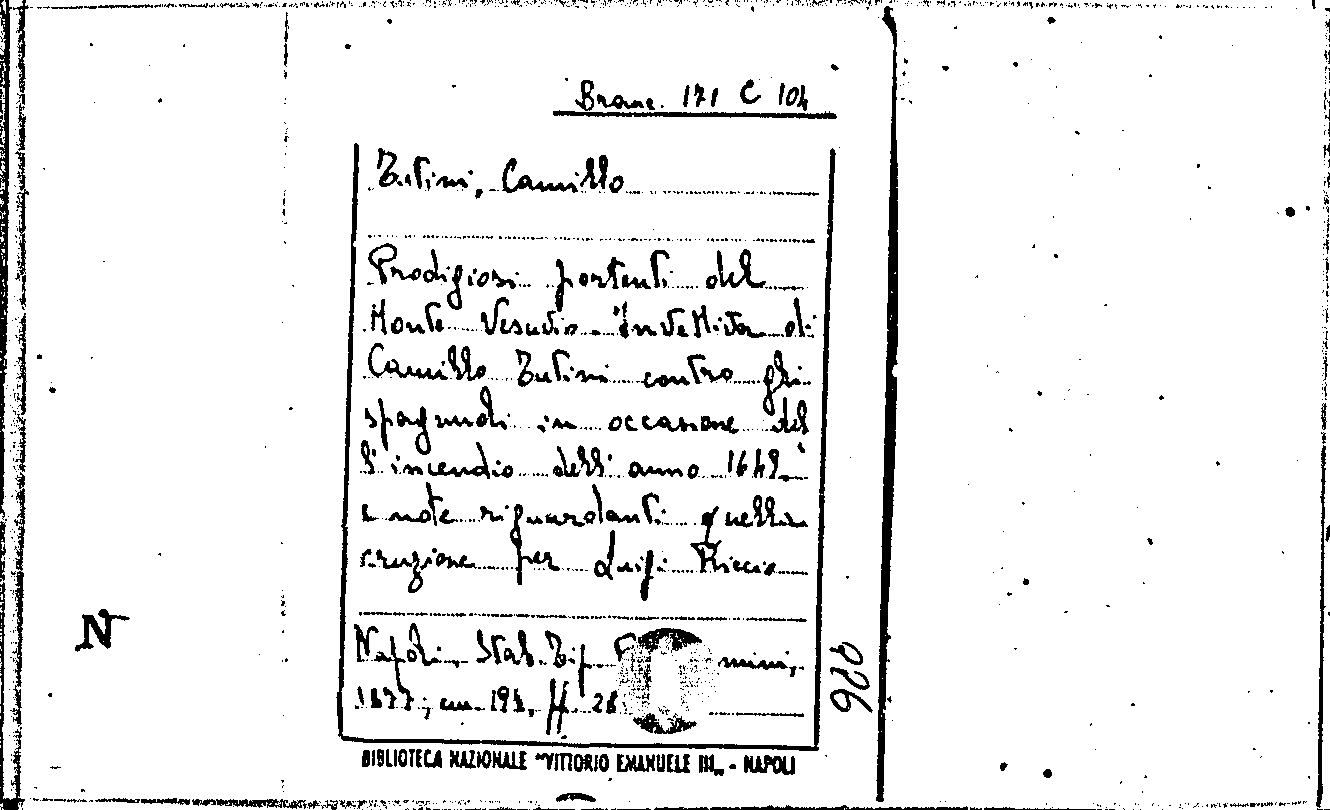 Branc. 171 C 104
Tutini, Camillo
Prodigiosi portenti del
Monte Vesuvio. Invettiva di
Camillo Tutini contro gli
spagnuoli in occasione del
l'incendio dell'anno 1649
e note riguardanti quella
eruzione per Luigi Riccio
Napoli, Stab. Tip. mini,
1877; cm. 19½, ff. 28
BIBLIOTECA NAZIONALE "VITTORIO EMANUELE III„ - NAPOLI
N
926